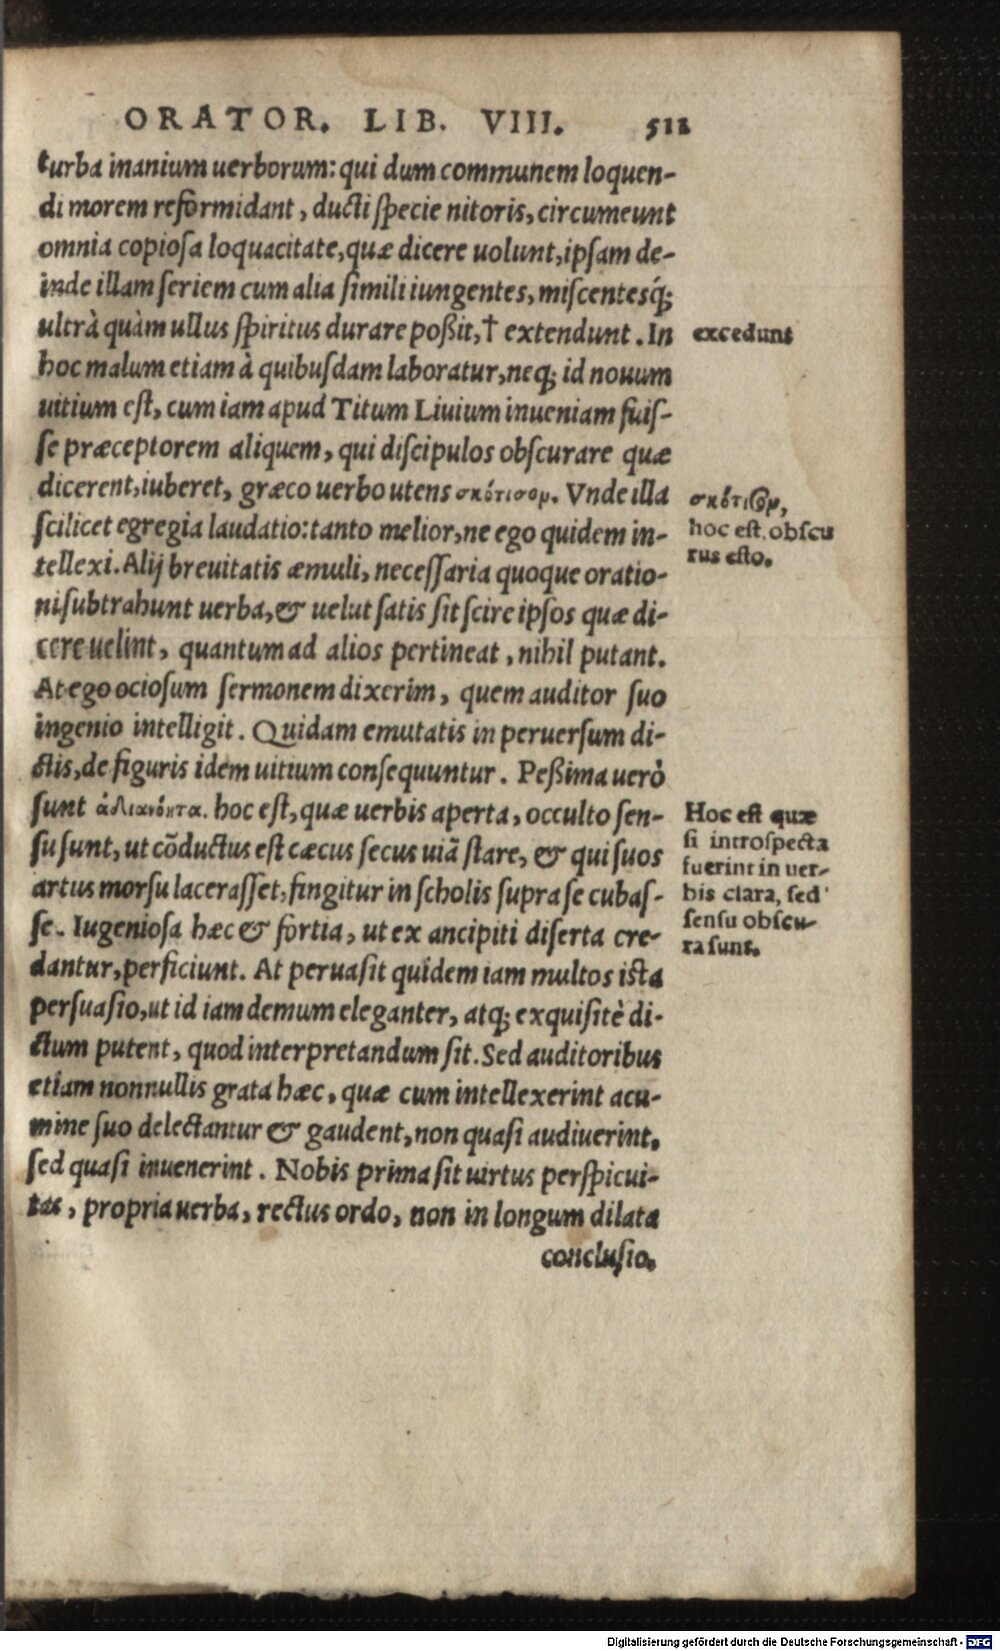 ORATOR. LIB. VIII. 511
turba inanium uerborum: qui dum communem loquen-
di morem reformidant, ducti ſpecie nitoris, circumeunt
omnia copioſa loquacitate, quæ dicere uolunt, ipſam de-
inde illam ſeriem cum alia ſimili iungentes, miſcentesq́;
ultrà quàm ullus ſpiritus durare poßit, † extendunt. In
excedunt
hoc malum etiam à quibuſdam laboratur, neq; id nouum
uitium eſt, cum iam apud Titum Liuium inueniam fuiſ-
ſe præceptorem aliquem, qui diſcipulos obſcurare quæ
dicerent, iuberet, græco uerbo utens σκότισομ. Vnde illa
ſcilicet egregia laudatio: tanto melior, ne ego quidem in-
tellexi. Alij breuitatis æmuli, neceſſaria quoque oratio-
σκότισομ,
hoc eſt, obſcu
rus eſto.
ni ſubtrahunt uerba, & uelut ſatis ſit ſcire ipſos quæ di-
cere uelint, quantum ad alios pertineat, nihil putant.
At ego ocioſum ſermonem dixerim, quem auditor ſuo
ingenio intelligit. Quidam emutatis in peruerſum di-
ctis, de figuris idem uitium conſequuntur. Peßima uerò
ſunt ἀδιανόητα. hoc eſt, quæ uerbis aperta, occulto ſen-
ſu ſunt, ut cōductus eſt cæcus ſecus uiā ſtare, & qui ſuos
artus morſu laceraſſet, fingitur in ſcholis ſupra ſe cubaſ-
ſe. Iugenioſa hæc & fortia, ut ex ancipiti diſerta cre-
dantur, perficiunt. At peruaſit quidem iam multos iſta
Hoc eſt quæ
ſi introſpecta
fuerint in uer-
bis clara, ſed
ſenſu obſcu-
ra ſunt.
perſuaſio, ut id iam demum eleganter, atq; exquiſitè di-
ctum putent, quod interpretandum ſit. Sed auditoribus
etiam nonnullis grata hæc, quæ cum intellexerint acu-
mine ſuo delectantur & gaudent, non quaſi audiuerint,
ſed quaſi inuenerint. Nobis prima ſit uirtus perſpicui-
tas, propria uerba, rectus ordo, non in longum dilata
concluſio.
Digitalisierung gefördert durch die Deutsche Forschungsgemeinschaft - DFG